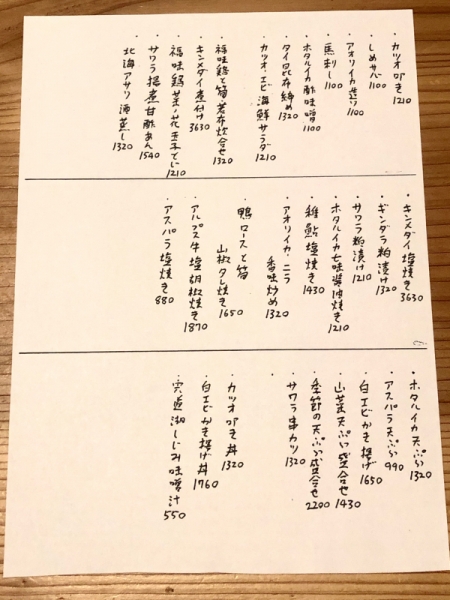 ・カツオ叩き 1210
・しめサバ 1100
・アオリイカ造り 1100
・馬刺し 1100
・ホタルイカ酢味噌 1100
・タイ昆布締め 1320
・カツオ・エビ海鮮サラダ 1210
・福味鶏と筍若布炊合せ 1320
・キンメダイ煮付け 3630
・福味鶏 菜ノ花玉子とじ 1210
・サワラ揚煮甘酢あん 1540
・北海アサリ酒蒸し 1320
・キンメダイ塩焼き 3630
・ギンダラ粕漬け 1320
・サワラ粕漬け 1210
・ホタルイカ七味醤油焼き 1210
・稚鮎塩焼き 1430
・アオリイカ・ニラ
香味炒め 1320
・鴨ロースと筍
山椒タレ焼き 1650
・アルプス牛塩胡椒焼き 1870
・アスパラ塩焼き 880
・ホタルイカ天ぷら 1320
・アスパラ天ぷら 990
・白エビかき揚げ 1650
・山菜天ぷら盛合せ 1430
・季節の天ぷら盛合せ 2200
・サワラ串カツ 1320
・カツオ叩き丼 1320
・白エビかき揚げ丼 1760
・宍道湖しじみ味噌汁 550